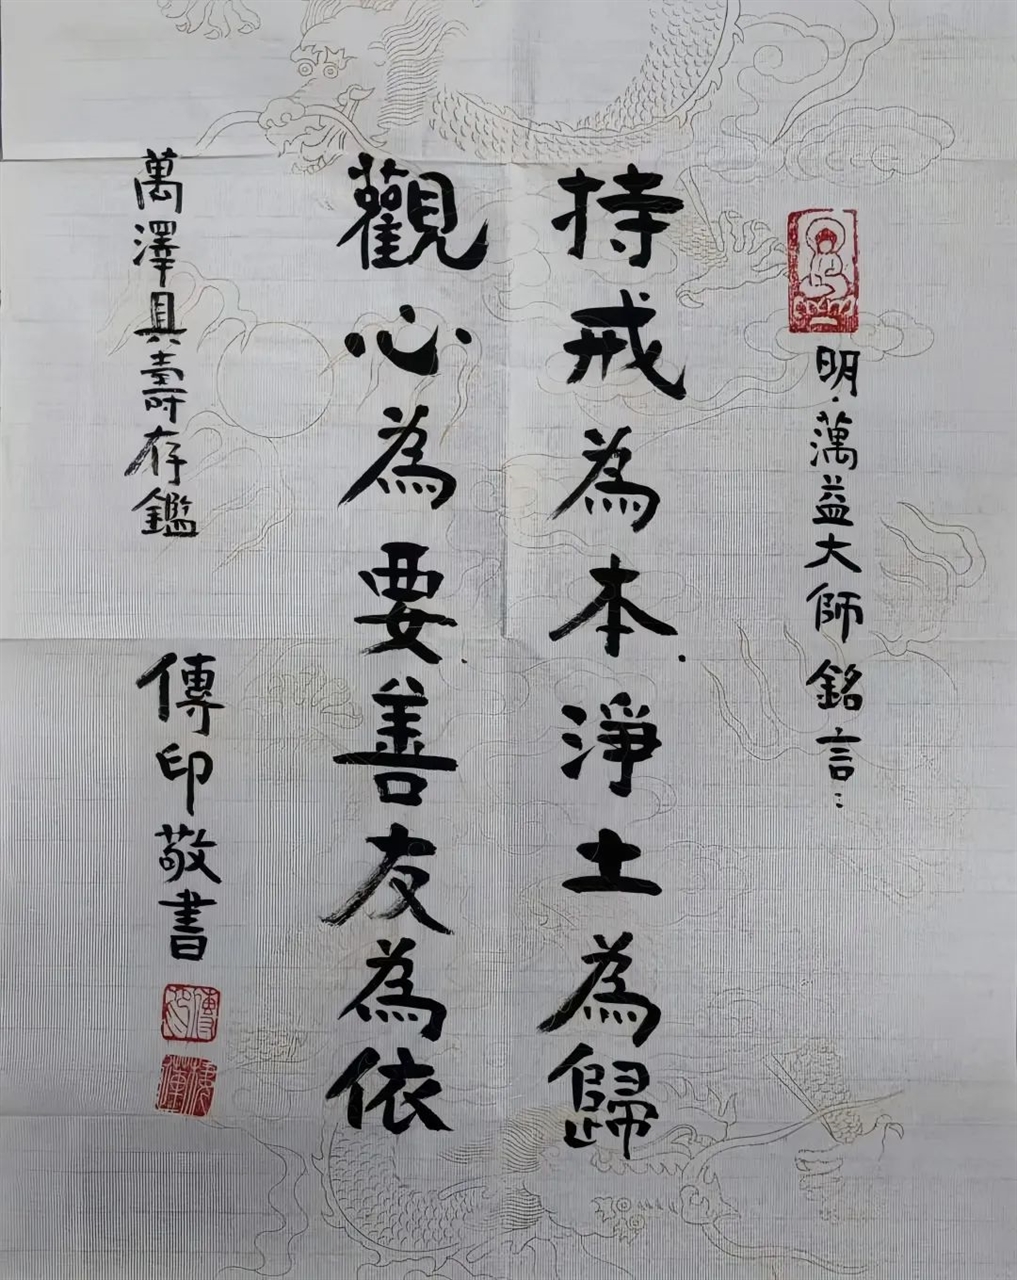 明·蕅益大師銘言：
持戒為本淨土為歸
觀心為要善友為依
萬澤具壽存鑑
傳印敬書
傳印